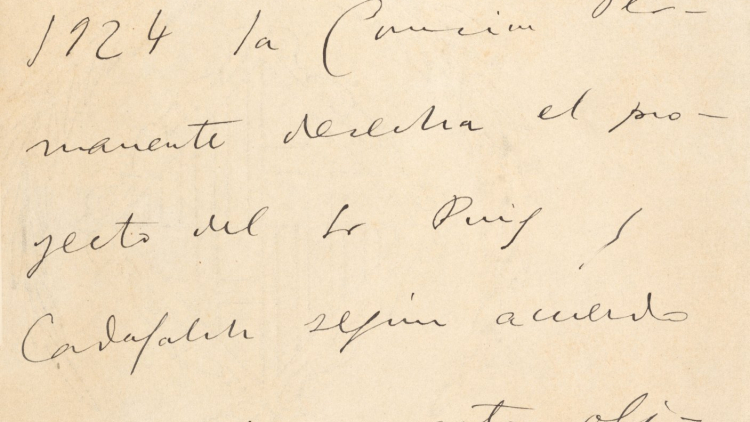 1924 la Comision Per-
manente desecha el pro-
yecto del Sr Puig y
Cadafalch según acuerdo